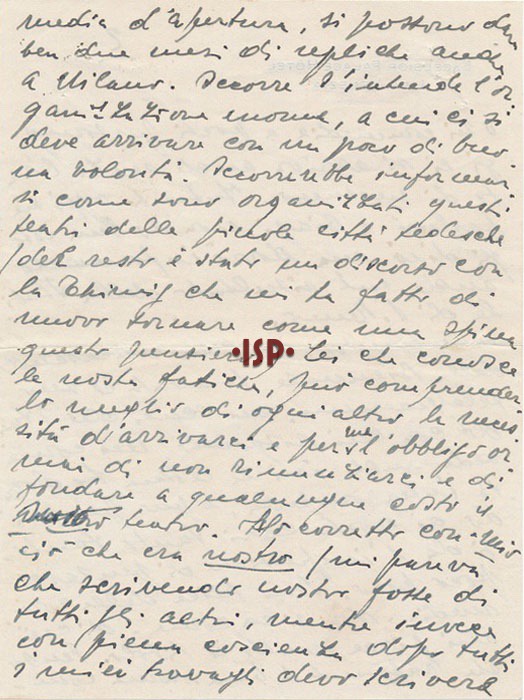 media d'apertura, si possono dare
ben due mesi di repliche anche
a Milano. Occorre s'intende l'or
ganizzazione nuova, a cui ci si
deve arrivare con un poco di buo
na volontà. Occorrerebbe informar
si come sono organizzati questi
teatri delle piccole città tedesche
(del resto è stato un discorso con
la Thimig che mi ha fatto di
nuovo tornare come una spina
questo pensiero
·ISP·
Lei che conosce
le nostre fatiche, può comprender
lo meglio di ogni altro la neces
sità d'arrivarci e per me l'obbligo or
mai di non rinunziarci e di
fondare a qualunque costo il
teatro. Ho corretto con mio
ciò che era nostro (mi pareva
che scrivendo nostro fosse di
tutti gli altri, mentre invece
con piena coscienza dopo tutti
i miei travagli devo scrivere